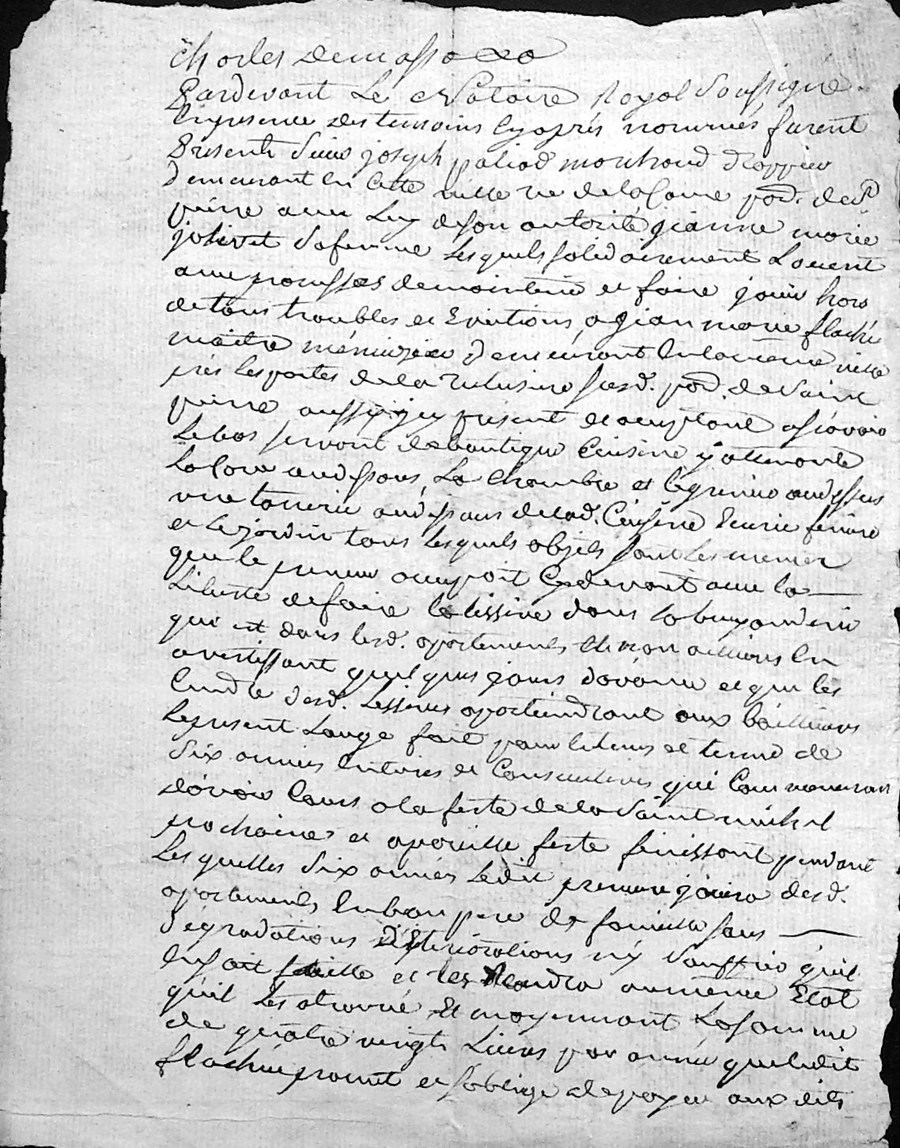 Charles Demasso
Pardevant Le Notaire Royal Soussigné
En presence des temoins Cyaprés nommés furent
Présents Sieur joseph paliod marchand drappier
demeurant En Cette ville rue de la paroisse de St
pierre avec Luy de son autorité jeanne marie
jolivet Sa femme Lesquels solidairement Louent
avec promesses de maintenir et faire jouir hors
de tous troubles et Evictions a jean marie flachér
maitre menuizier demeurant En la meme ville
prés Les portes de la pard. de Saint
pierre aussy icy présent et acceptant asçavoir
Le bas servant de boutique Cuisine y attenante
La Cave audessous La Chambre et le grenier audessus
une audessous de lad. Cuisine Ecurie feniere
et Le jardin tous Lesquels objets sont Les memes
que le preneur occupoit Cydevant avec la
Liberté de faire la lissive dans la buyanderie
qui est dans lesd. apartements Et non ailleurs En
avertissant quelques jours d'avance et que les
Cendre desd. Lessives apartiendront aux bailleurs
Le present Louage fait pour le tems et terme de
Six années Entieres et Consecutives qui Commenceront
d'avoir Cours a la feste de la Saint michel
prochaine et a pareille feste finissant pendant
Lesquelles Six années Ledit preneur jouira desd.
apartements En bon pere de famille sans
dégradations déteriorations ny Souffrir qu'il
En soit faitte et les Rendra au meme Etat
qu'il les a trouvé Et moyennant La somme
de quatre vingt Livres par année que ledit
flachér promet et s'oblige de payer aux dits